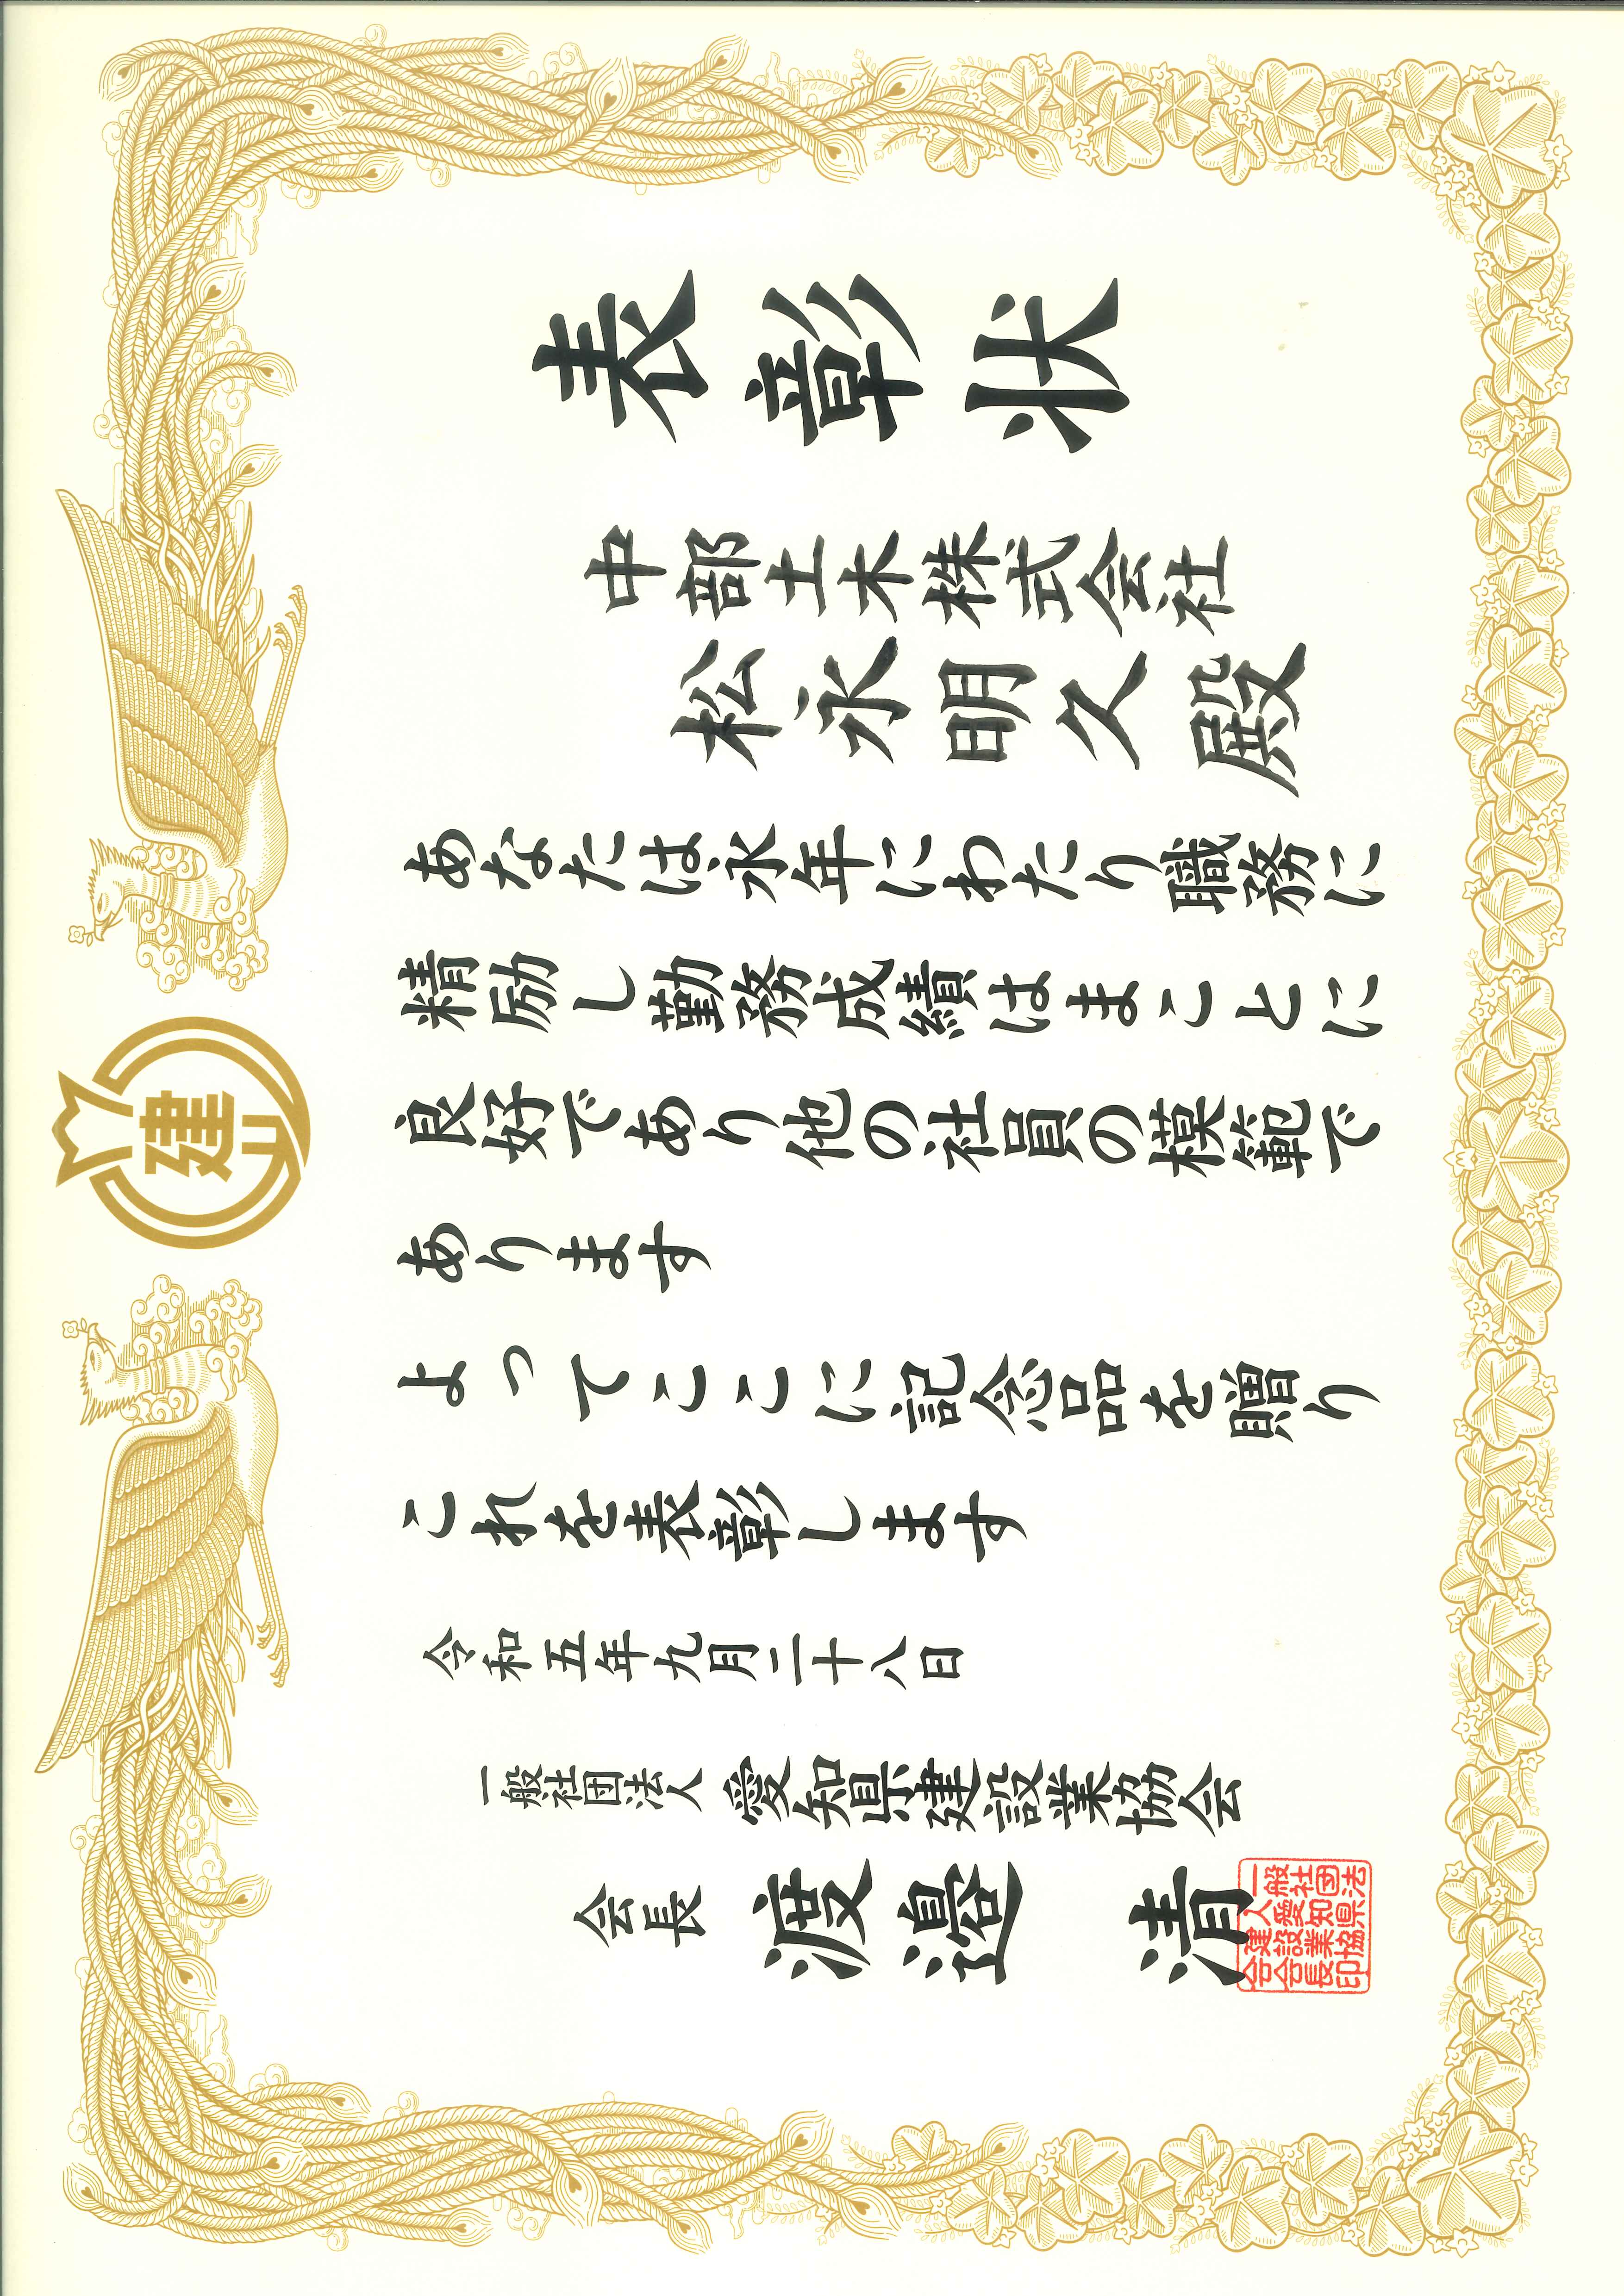 表彰状
中部土木株式会社
松永明久殿
あなたは永年にわたり職務に
精励し勤務成績はまことに
良好であり他の社員の模範で
あります
よってここに記念品を贈り
これを表彰します
令和五年九月二十八日
一般社団法人 愛知県建設業協会
会長 渡邉 清
一般社団法
人愛知県
建設業協
会会長印
建